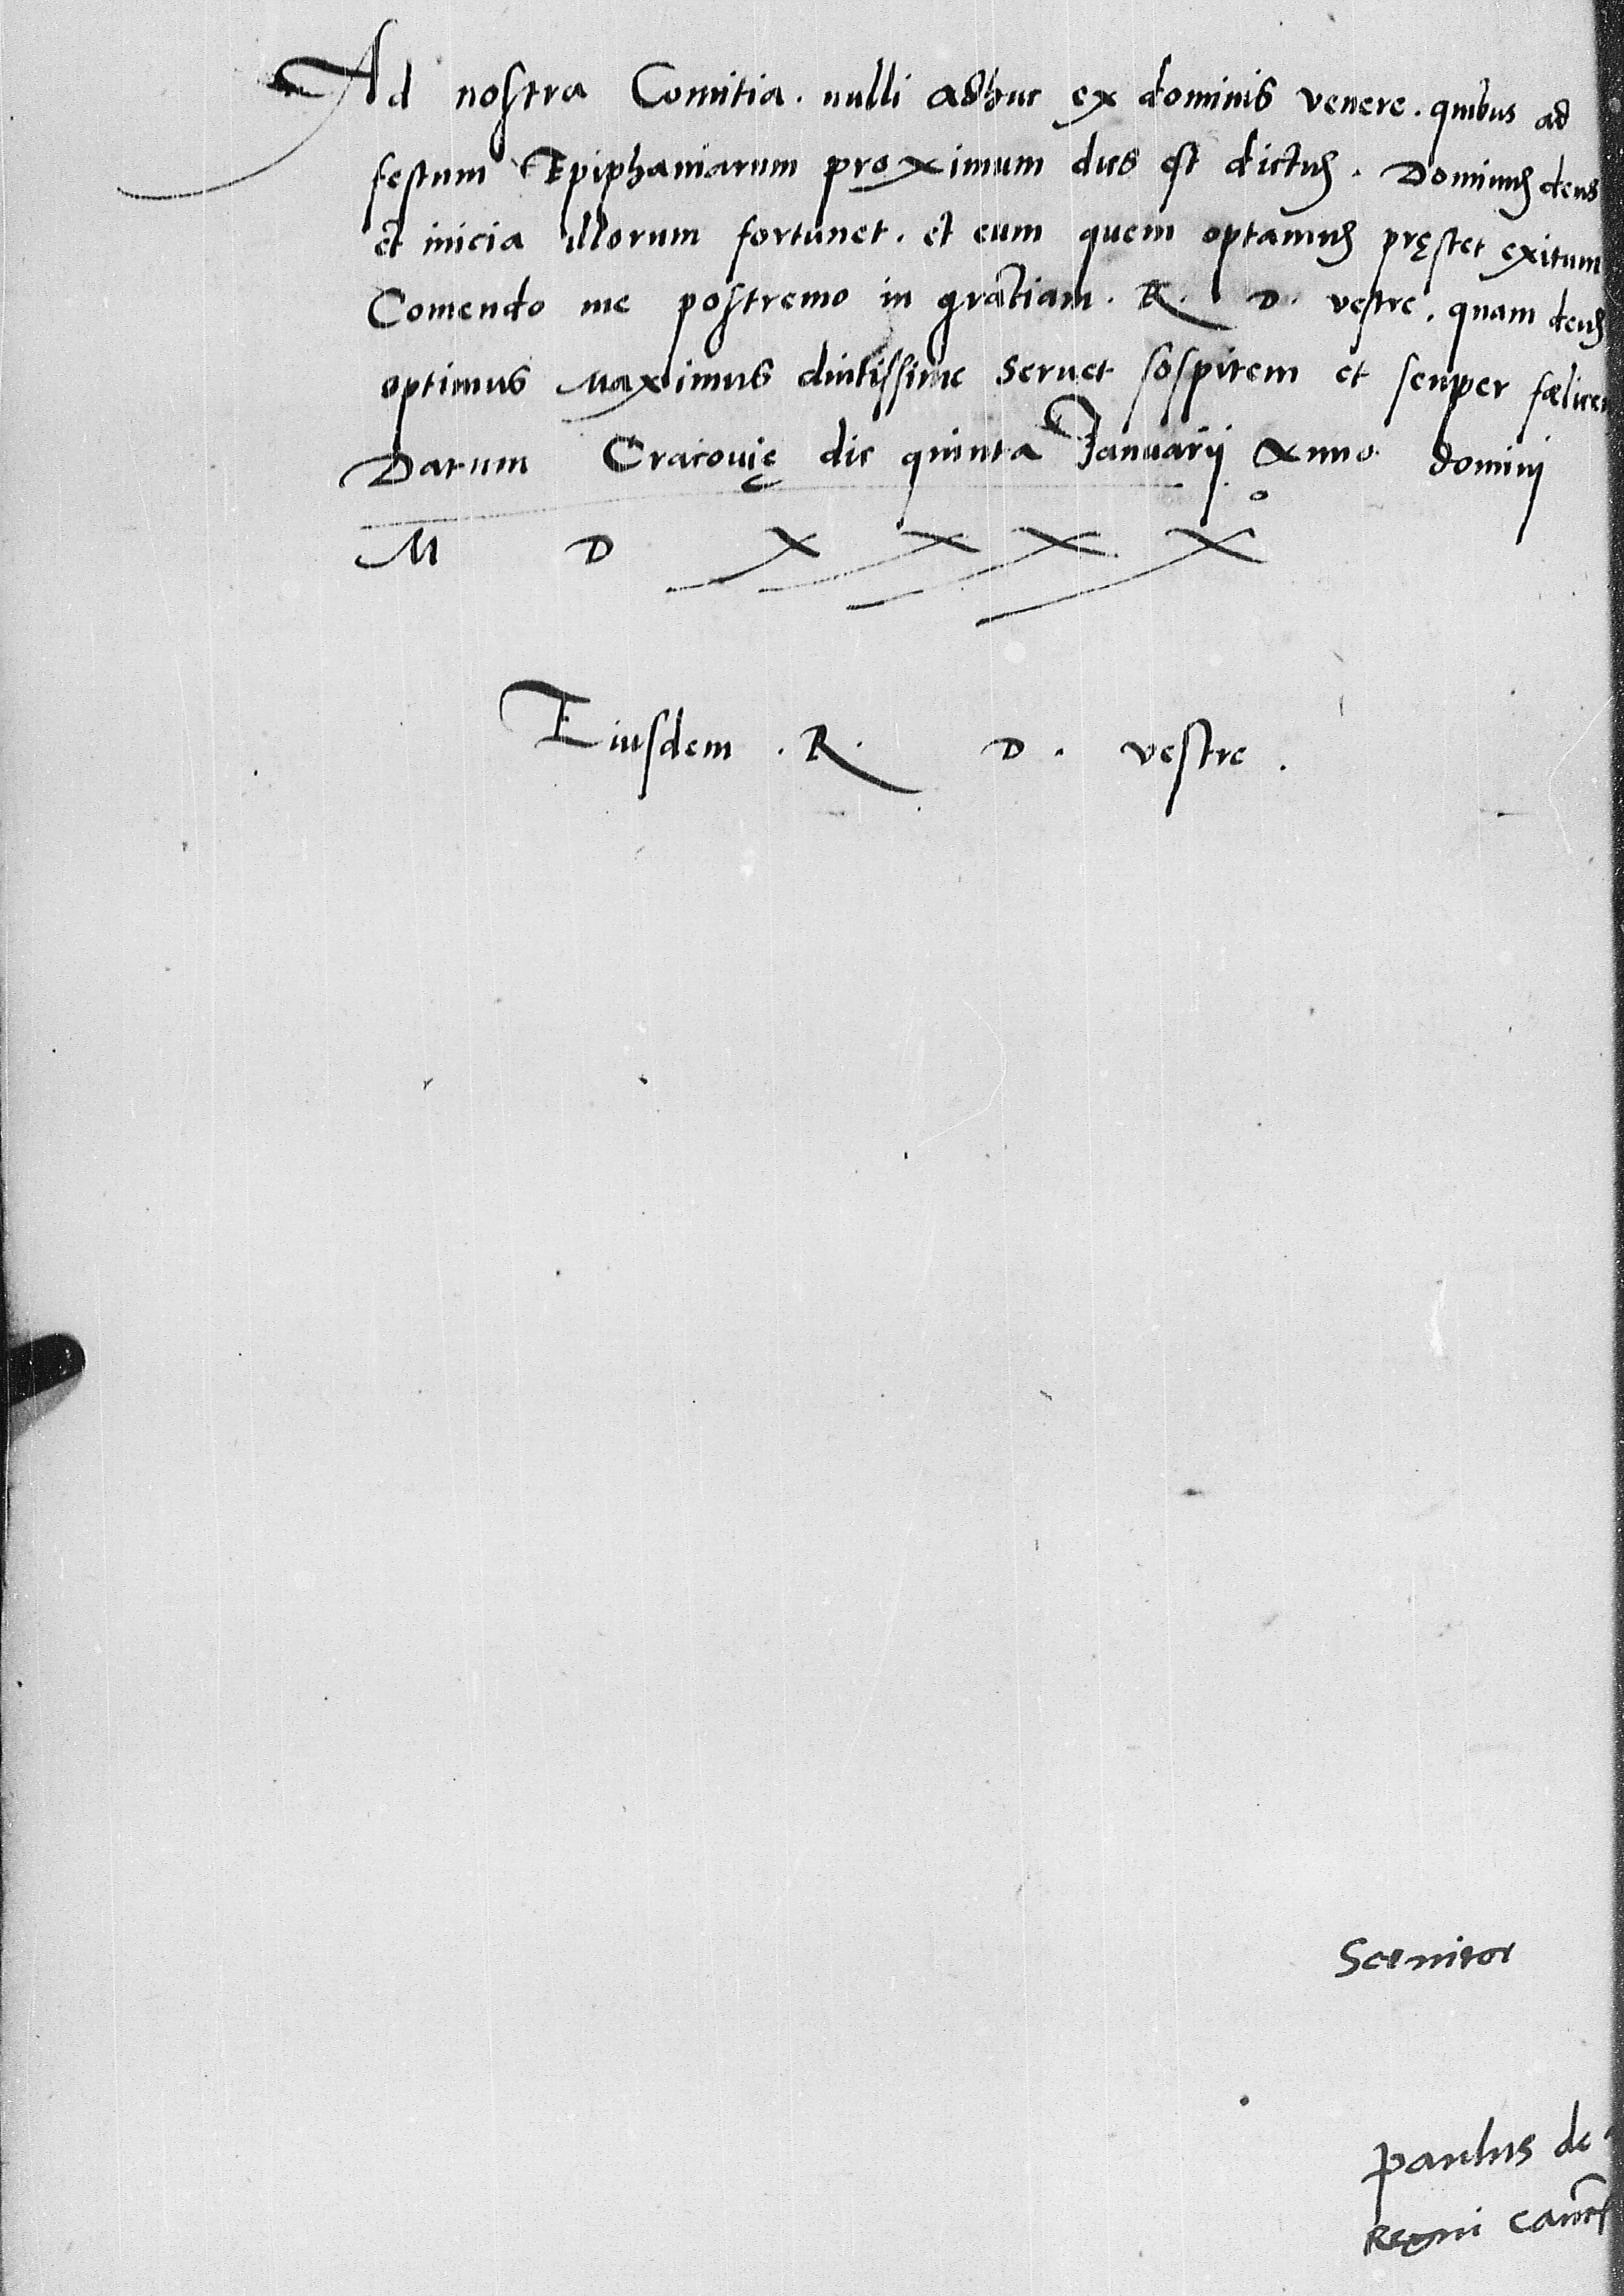 Ad nostra Comitia. nulli adhuc ex dominis venere. quibus ad
festum Epiphaniarum proximum dies est dictus. Dominus deus
et inicia illorum fortunet. et eum quem optamus pręstet exitum
Comendo me postremo in gratiam. R. D. vestre. quam deus
optimus Maximus diutissime servet sospitem et semper fœlicem
Datum Cracovię die quinta Januarij Anno domini
M D X X X X
Eiusdem .R. D. vestre.
Servitor
paulus de
Regni canc